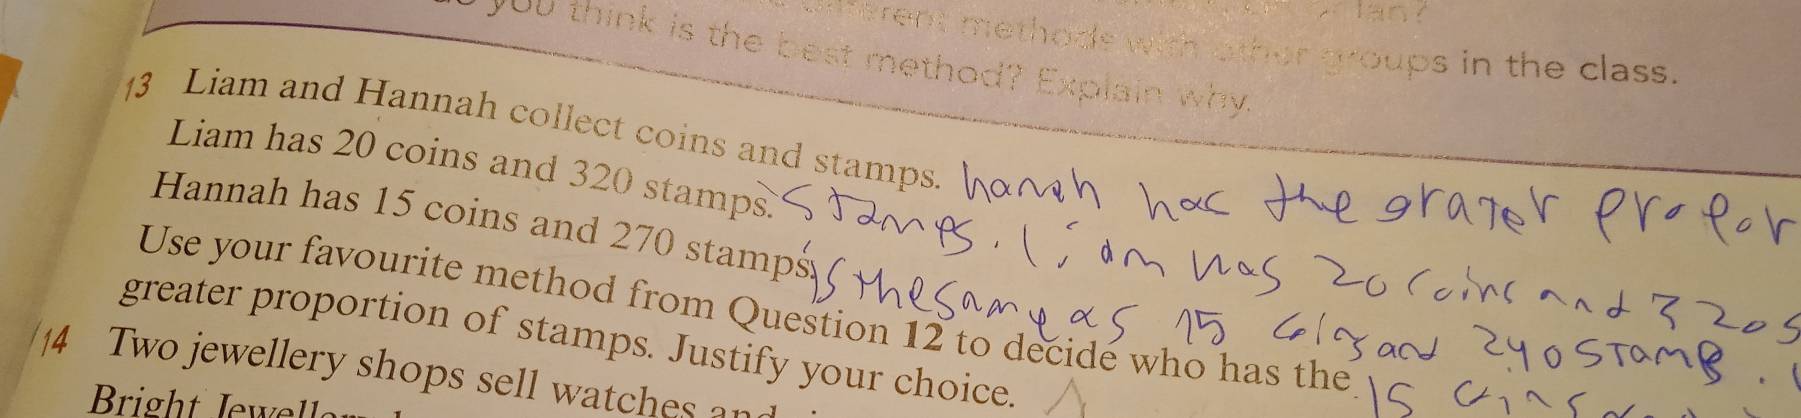 different methods with other groups in the class.
you think is the best method? Explain why.
13 Liam and Hannah collect coins and stamps. hanah has the grater propor
Liam has 20 coins and 320 stamps. stamps. liam has 20 coins and 320s
Hannah has 15 coins and 270 stamps. is the same as 15 coins and 240 stamps.
Use your favourite method from Question 12 to decide who has the 15 coins
greater proportion of stamps. Justify your choice.
14 Two jewellery shops sell watches and
Bright